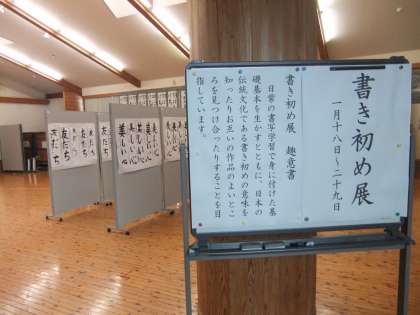 書き初め展
一月十八日〜二十九日
書き初め展　趣意書
日常の書写学習で身に付けた基
礎基本を生かすとともに、日本の
伝統文化である書き初めの意味を
知ったりお互いの作品のよいとこ
ろを見つけ合ったりすることを目
指しています。
美しい心
美しい心
美しい心
美しい心
友だち
友だち
友だち